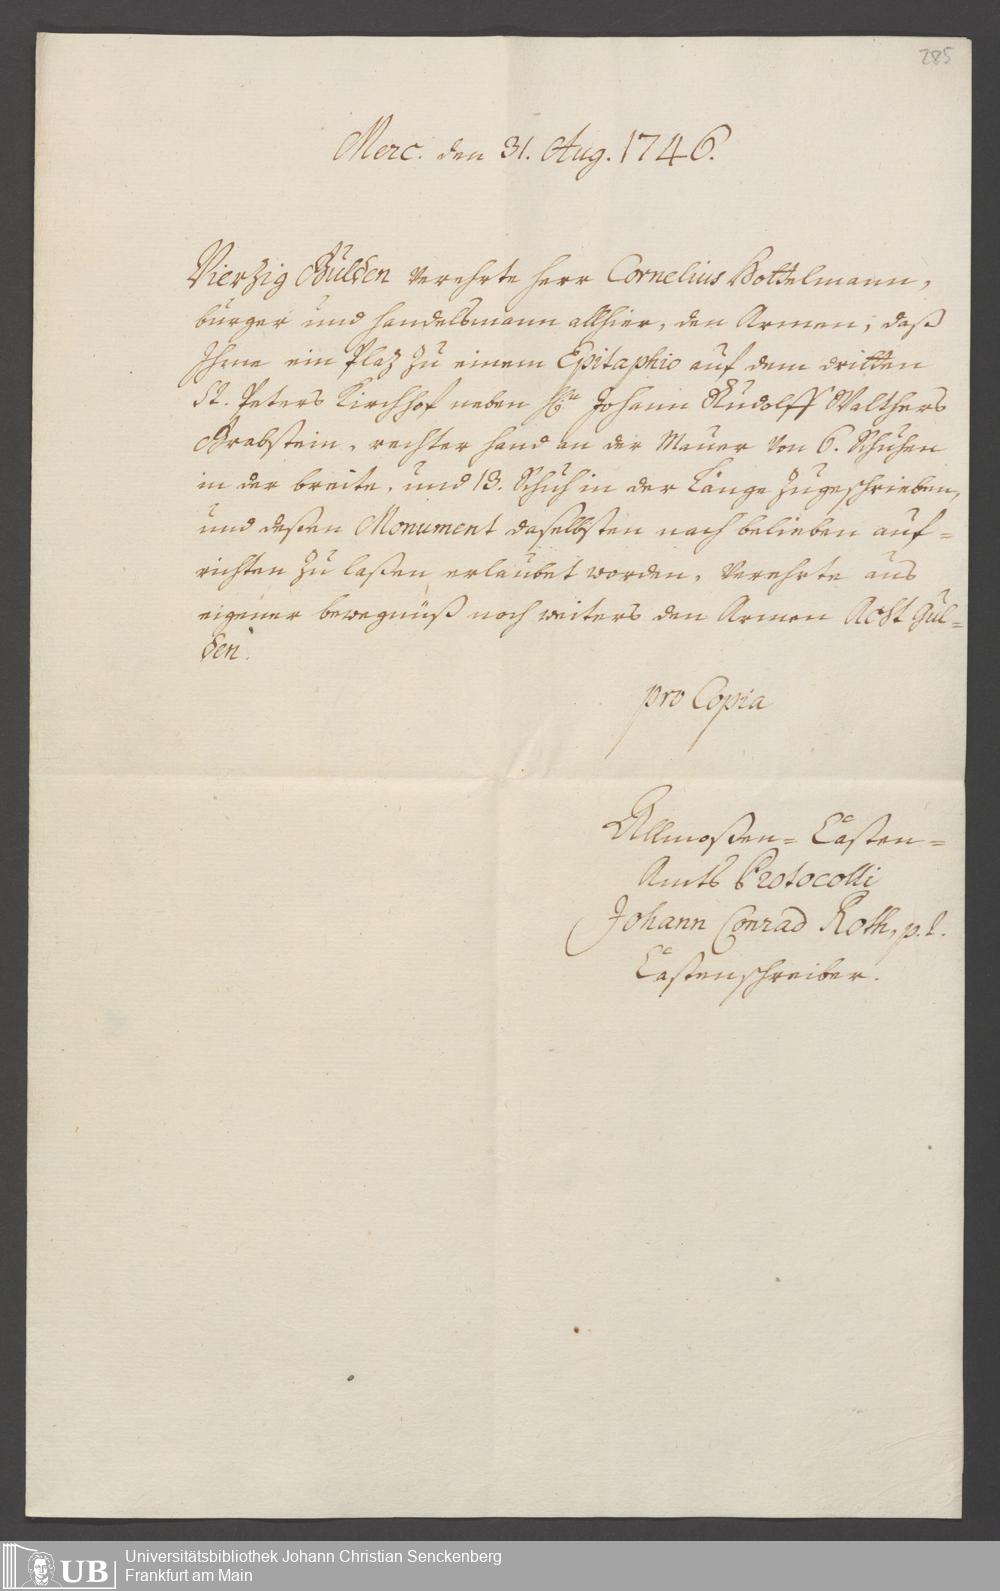 285
Merc. den 31. Aug. 1746.
Vierzig Gulden verehrte Herr Cornelius Bottelmann,
burger und handelsmann allhier, den Armen, daß
Ihme ein Plaz zu einem Epitaphio auf dem dritten
St. Peters Kirchhof neben Hn Johann Rudolff Walthers
Grabstein, rechter hand an der Mauer von 6. Schuhen
in der breite, und 13. Schuh in der Länge zugeschrieben,
und deßen Monument daselbsten nach belieben auf=
richten zu laßen, erlaubet worden, Verehrte aus
eigener bewegnüß noch weiters den Armen Acht Gul=
den.
pro Copia
Allmoßen= Casten=
Amts Protocolli
Johann Conrad Roth, p. t.
Castenschreiber.
UB
Universitätsbibliothek Johann Christian Senckenberg
Frankfurt am Main